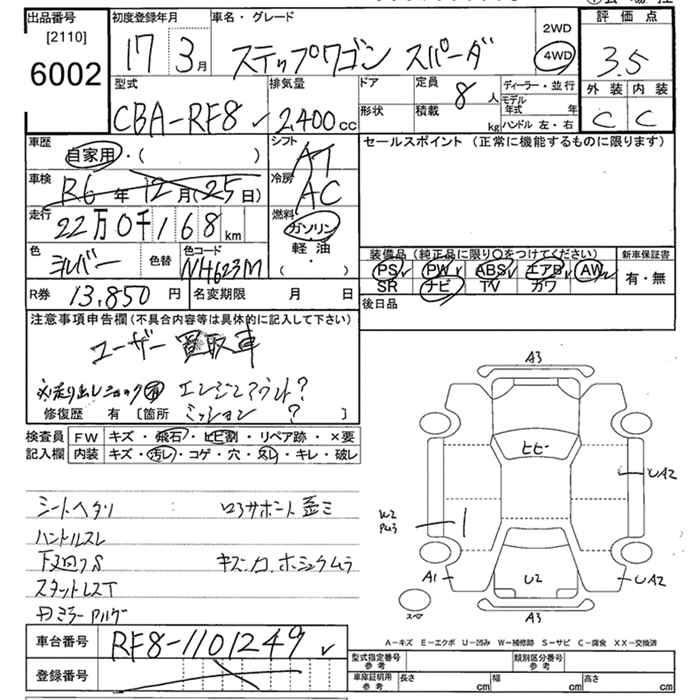 出品番号 [2110] 6002
初度登録年月 17 3月
車名・グレード ステップワゴン スパーダ
2WD
4WD
評価点 3.5
外装 内装
C C
型式 CBA-RF8
排気量 2,400cc
ドア
形状
定員 8人
積載 kg
ディーラー・並行
モデル年式 年
ハンドル 左・右
車歴 自家用・( )
シフト AT
セールスポイント (正常に機能するものに限ります)
車検 R6年12月(25日)
冷房 AC
走行 22万0千168km
燃料 ガソリン
軽油
( ・ )
色 シルバー 色替 色コード NH623M
装備品 (純正品に限り○をつけてください)
PS PW ABS エアB AW
SR ナビ TV カワ
新車保証書
有・無
R券 13,850円 名変期限 月 日
後日品
注意事項申告欄(不具合内容等は具体的に記入して下さい)
ユーザー買取車
※走り出しショック有 エンジンマウント?
ミッション ?
修復歴 有 [箇所 ]
検査員 FW キズ・飛石・ヒビ割・リペア跡・×要
記入欄 内装 キズ・汚レ・コゲ・穴・スレ・キレ・破レ
シートヘタリ ロアサポート歪ミ
ハンドルスレ
下廻りS キズ.凹.ホシュウムラ
スタットレスT
A3
ヒビー
UA2
W2
A1
U2
UA2
スペア
A3
A-キズ E-エクボ U-凹み W-補修跡 S-サビ C-腐食 XX-交換済
車台番号 RF8-1101249
登録番号
型式指定番号 参考
類別区分番号 参考
車庫証明用 参考 長さ cm 幅 cm 高さ cm